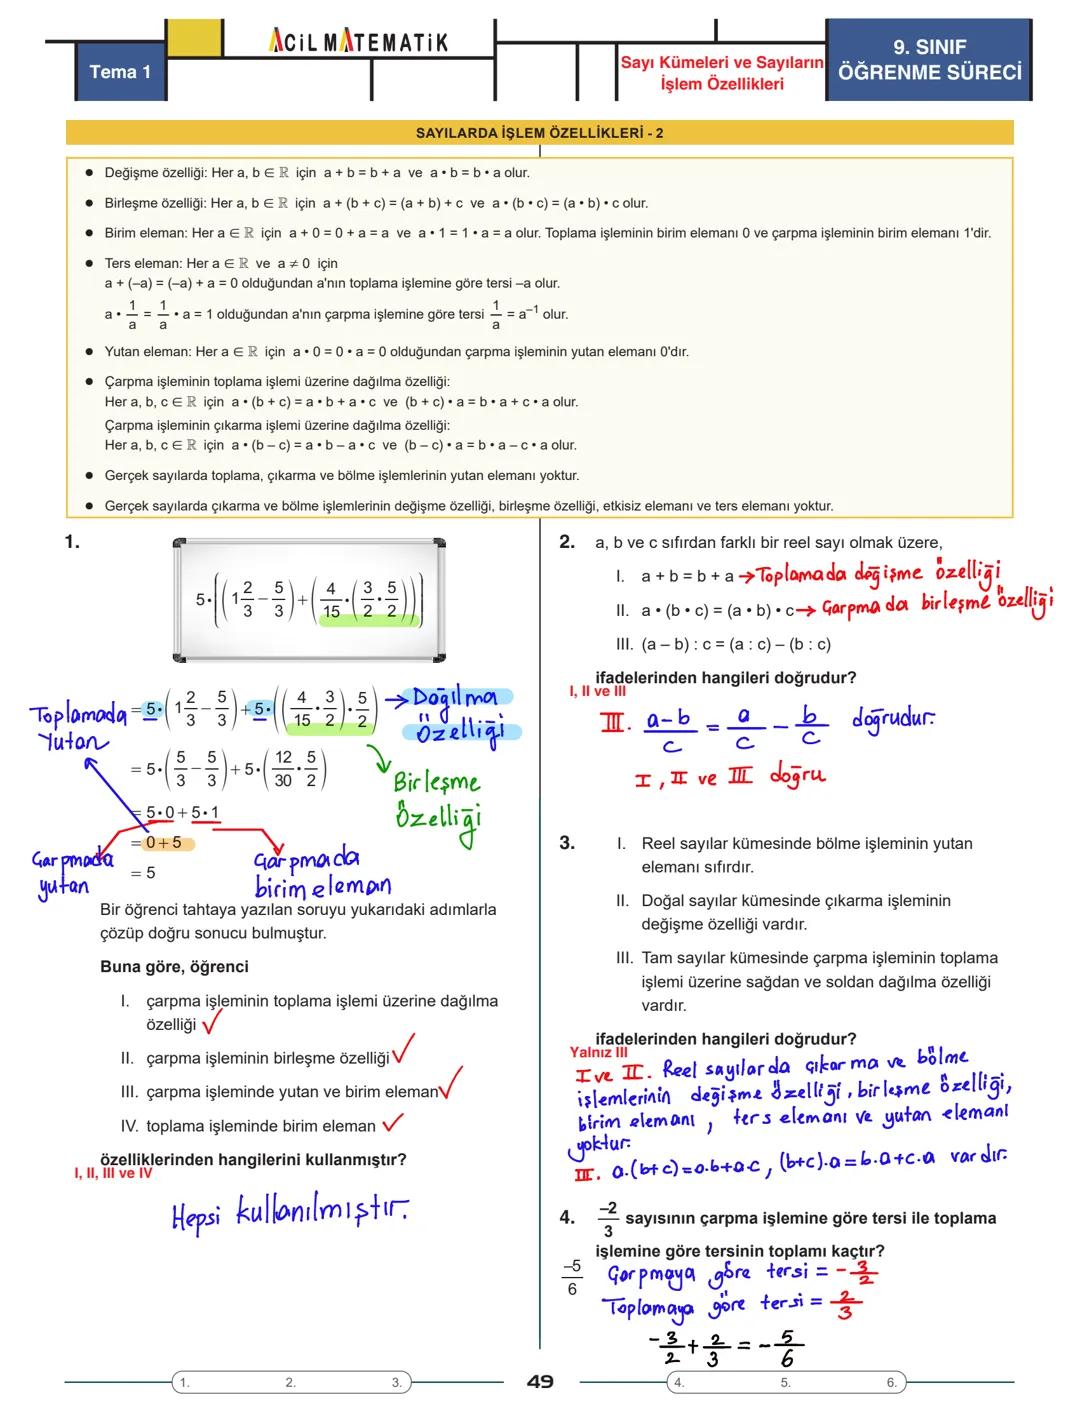 Tema 1
ACİL MATEMATİK
Sayı Kümeleri ve Sayıların
İşlem Özellikleri
9. SINIF
ÖĞRENME SÜRECİ
SAYILARDA İŞLEM ÖZELLİKLERİ - 2
● Değişme özelliği: Her a, b ∈ ℝ için a + b = b + a ve a • b = b • a olur.
● Birleşme özelliği: Her a, b ∈ ℝ için a + (b + c) = (a + b) + c ve a • (b • c) = (a • b) • c olur.
● Birim eleman: Her a ∈ ℝ için a + 0 = 0 + a = a ve a • 1 = 1 • a = a olur. Toplama işleminin birim elemanı 0 ve çarpma işleminin birim elemanı 1'dir.
● Ters eleman: Her a ∈ ℝ ve a ≠ 0 için
a + (–a) = (–a) + a = 0 olduğundan a'nın toplama işlemine göre tersi –a olur.
a • 1/a = 1/a • a = 1 olduğundan a'nın çarpma işlemine göre tersi 1/a = a⁻¹ olur.
● Yutan eleman: Her a ∈ ℝ için a • 0 = 0 • a = 0 olduğundan çarpma işleminin yutan elemanı 0'dır.
● Çarpma işleminin toplama işlemi üzerine dağılma özelliği:
Her a, b, c ∈ ℝ için a • (b + c) = a • b + a • c ve (b + c) • a = b • a + c • a olur.
Çarpma işleminin çıkarma işlemi üzerine dağılma özelliği:
Her a, b, c ∈ ℝ için a • (b – c) = a • b – a • c ve (b – c) • a = b • a – c • a olur.
● Gerçek sayılarda toplama, çıkarma ve bölme işlemlerinin yutan elemanı yoktur.
● Gerçek sayılarda çıkarma ve bölme işlemlerinin değişme özelliği, birleşme özelliği, etkisiz elemanı ve ters elemanı yoktur.
1.
5•((1 2/3 – 5/3) + (4/15 • (3/2 • 5/2)))
= 5•(1 2/3 – 5/3) + 5•((4/15 • 3/2) • 5/2) → Dağılma
Özelliği
Toplamada
Yutan
= 5•(5/3 – 5/3) + 5•(12/30 • 5/2)
Birleşme
Özelliği
= 5•0 + 5•1
= 0 + 5
= 5
Çarpmada
yutan
Çarpmada
birim eleman
Bir öğrenci tahtaya yazılan soruyu yukarıdaki adımlarla
çözüp doğru sonucu bulmuştur.
Buna göre, öğrenci
I. çarpma işleminin toplama işlemi üzerine dağılma
özelliği ✓
II. çarpma işleminin birleşme özelliği ✓
III. çarpma işleminde yutan ve birim eleman ✓
IV. toplama işleminde birim eleman ✓
özelliklerinden hangilerini kullanmıştır?
I, II, III ve IV
Hepsi kullanılmıştır.
2. a, b ve c sıfırdan farklı bir reel sayı olmak üzere,
I. a + b = b + a → Toplamada değişme özelliği
II. a • (b • c) = (a • b) • c → Çarpmada birleşme özelliği
III. (a – b) : c = (a : c) – (b : c)
ifadelerinden hangileri doğrudur?
I, II ve III
III. a-b/c = a/c - b/c doğrudur.
I, II ve III doğru
3. I. Reel sayılar kümesinde bölme işleminin yutan
elemanı sıfırdır.
II. Doğal sayılar kümesinde çıkarma işleminin
değişme özelliği vardır.
III. Tam sayılar kümesinde çarpma işleminin toplama
işlemi üzerine sağdan ve soldan dağılma özelliği
vardır.
ifadelerinden hangileri doğrudur?
Yalnız III
I ve II. Reel sayılarda çıkarma ve bölme
işlemlerinin değişme özelliği, birleşme özelliği,
birim elemanı, ters elemanı ve yutan elemanı
yoktur.
III. a.(b+c)=a.b+a.c, (b+c).a=b.a+c.a vardır.
4. –2/3 sayısının çarpma işlemine göre tersi ile toplama
işlemine göre tersinin toplamı kaçtır?
–5/6
Çarpmaya göre tersi = -3/2
Toplamaya göre tersi = 2/3
-3/2 + 2/3 = -5/6
1. 2. 3. 49 4. 5. 6.